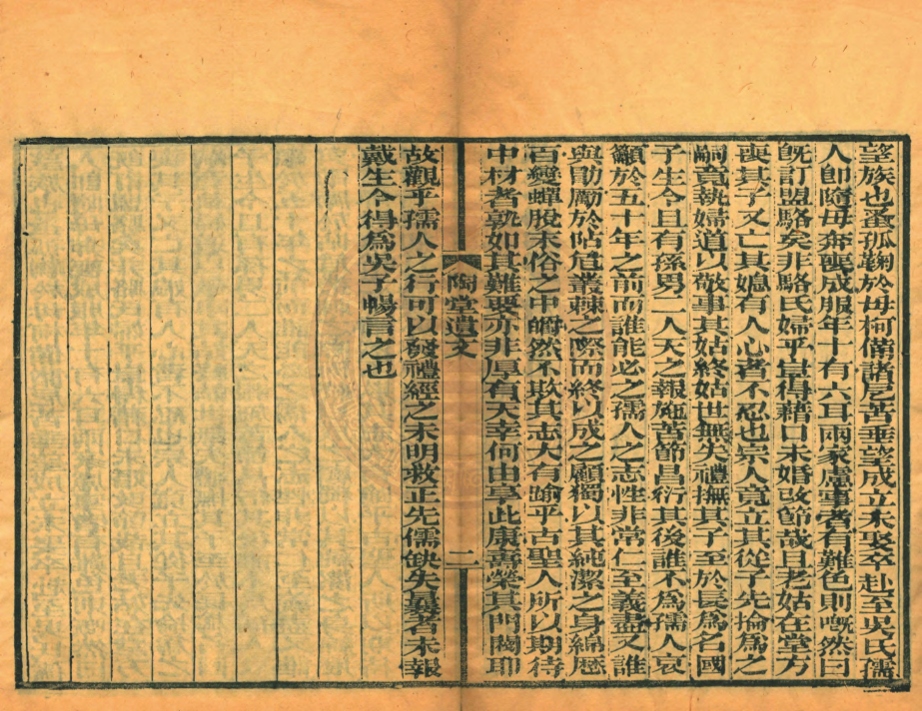 望族也蚤孤鞠於母柯備諸尼苦垂望成立未娶卒赴至吳氏孺
人卽隨母奔喪成服年十有六耳兩家慮事者有難色則嘅然曰
旣訂盟駱矣非駱氏婦乎豈得藉口未婚改節哉且老姑在堂方
喪其子又亡其媳有人心者不忍也宗人竟立其從子先掄爲之
嗣竟執婦道以敬事其姑終姑世無失禮撫其子至於長爲名國
子生今且有孫男二人天之報施苦節昌衍其後誰不爲孺人哀
籲於五十年之前而誰能必之孺人之志性非常仁至義盡又誰
與助勵於阽危叢棘之際而終以成之顧獨以其純潔之身綿歷
百變蟬脫末俗之中皭然不欺其志大有踰乎古聖人所以期待
中材者孰如其難娶亦非厚有天幸何由享此康壽榮其門閭耶
陶堂遺文
二
故觀乎孺人之行可以發禮經之未明救正先儒缺失曩著未報
戴生今得爲吳子暢言之也